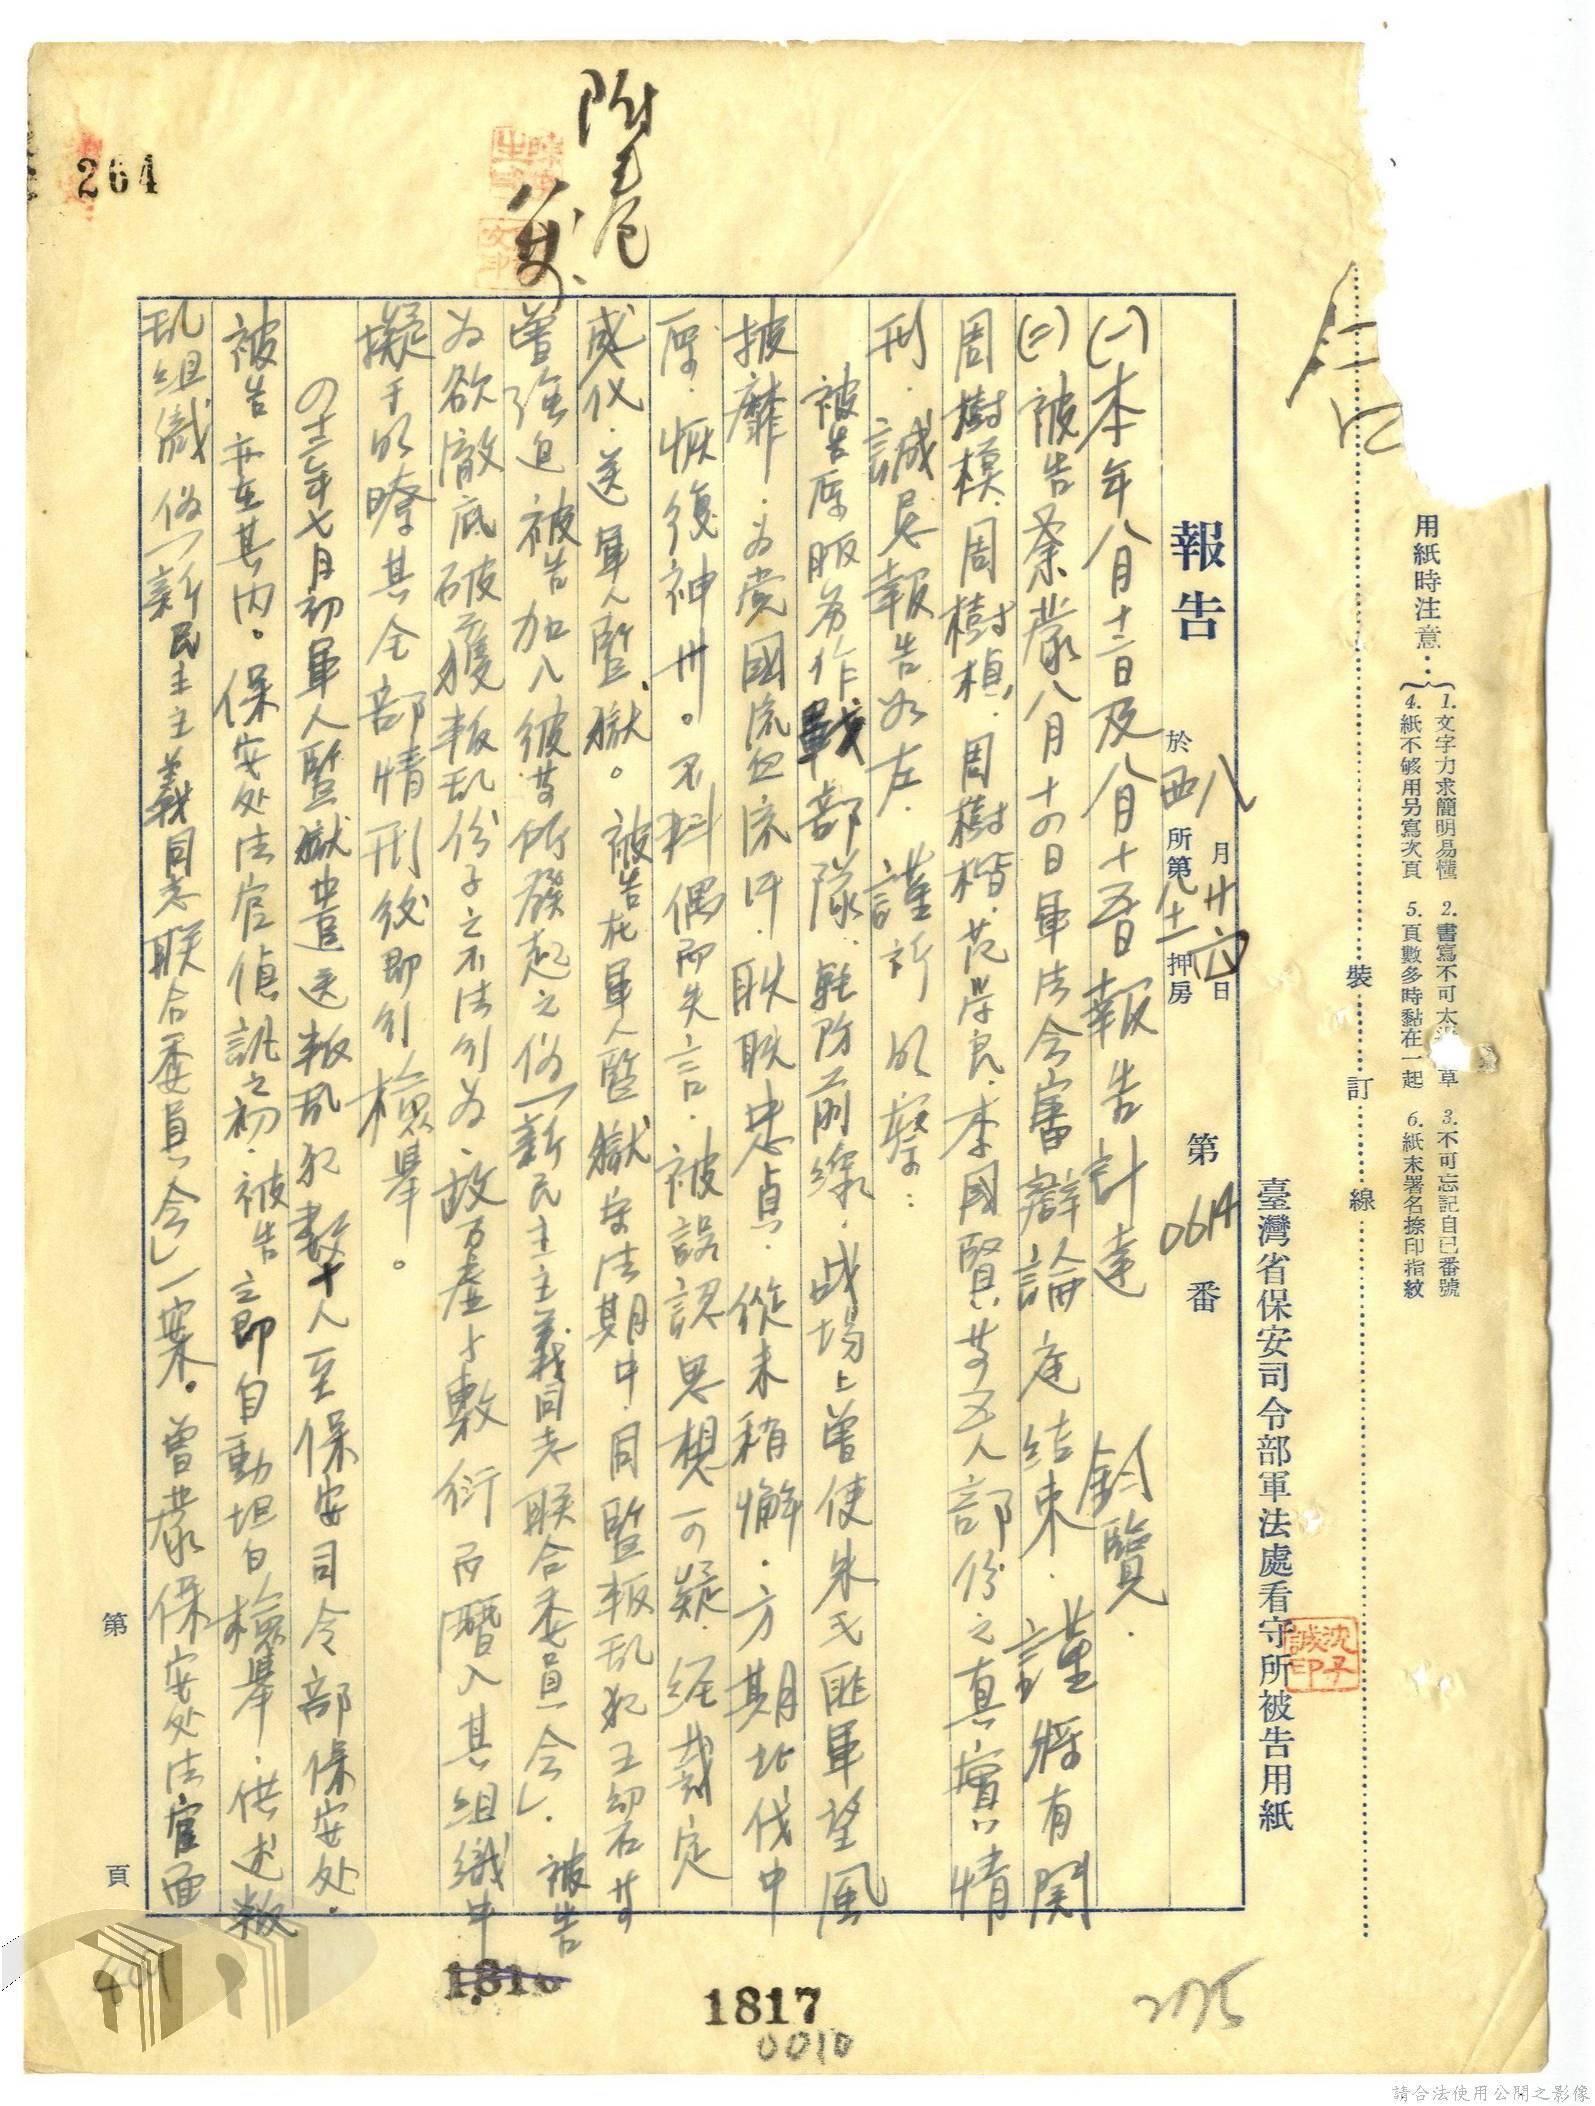 用紙時注意：
1. 文字力求簡明易懂 2. 書寫不可太草 3. 不可忘記自已番號
4. 紙不够用另寫次頁 5. 頁數多時黏在一起 6. 紙末署名捺印指紋
裝 訂 線
臺灣省保安司令部軍法處看守所被告用紙
沈子誠印
報告
八月廿六日
於西所第九十一押房
第0614番
(一)本年八月十二日及八月十五日報告計達 鈞覽．
(二)被告等蒙八月十四日軍法合審辯論庭結束．謹將有関
周樹模．周樹楨．周樹楷．范學良．李國賢等五人部份之真實情
刑．誠思報告如左．謹祈明察：
被告原服務作戰部隊．駐防前線．战場上曾使朱毛匪軍望風
披靡．为党國流血流汗．耿耿忠貞．從未稍懈．方期北伐中
原．恢復神州。不料偶而失言．被誤認思想可疑．经裁定
感化．送軍人監獄。被告在軍人監獄守法期中．同監叛乱犯王幼石等
曾強迫被告加入彼等所發起之偽「新民主主義同志联合委員会」．被告
为欲澈底破獲叛乱份子之不法行为．故乃虛与敷衍而潛入其組織中．
擬于明瞭其全部情刑後即行檢舉。
四十二年七月初軍人監獄曾送叛乱犯數十人至保安司令部保安处．
被告亦在其内。保安处法官偵訊之初．被告立即自動坦白檢舉．供述叛
乱組織偽「新民主主義同志联合委員会」一案。曾蒙保安处法官面
第 頁
附卷
264
1816
1817
0010
275
請合法使用公開之影像